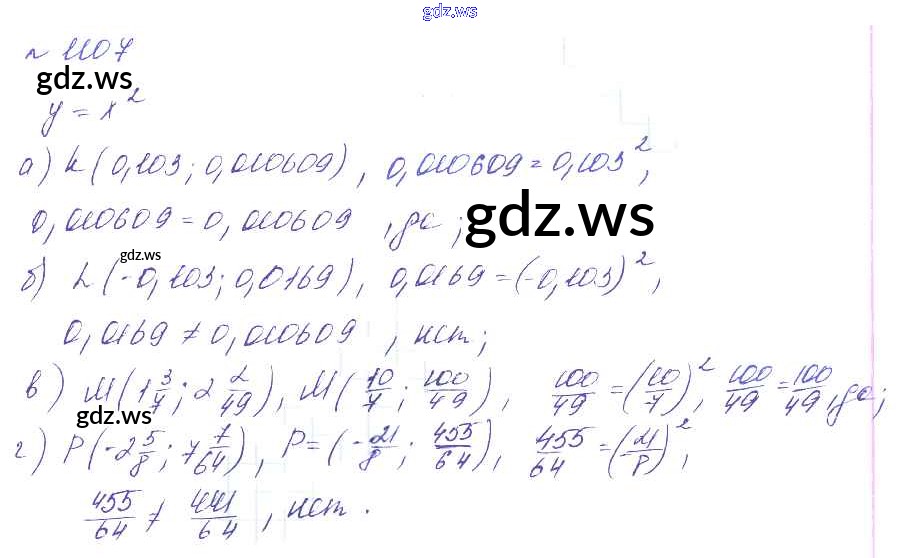 gdz.ws
№ 1107
gdz.ws
y = x²
а) K(0,103; 0,010609), 0,010609 = 0,103²,
0,010609 = 0,010609, да;
gdz.ws
gdz.ws
б) L(-0,103; 0,0169), 0,0169 = (-0,103)²,
0,0169 ≠ 0,010609, нет;
в) M(1 3/7; 2 2/49), M(10/7; 100/49), 100/49 = (10/7)², 100/49 = 100/49, да;
gdz.ws
г) P(-2 5/8; 7 7/64), P = (-21/8; 455/64), 455/64 = (21/8)²,
455/64 ≠ 441/64, нет.